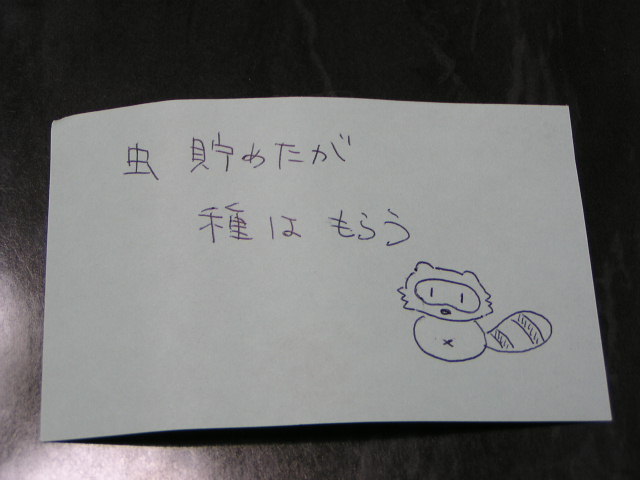 虫 貯めたが
種は もらう